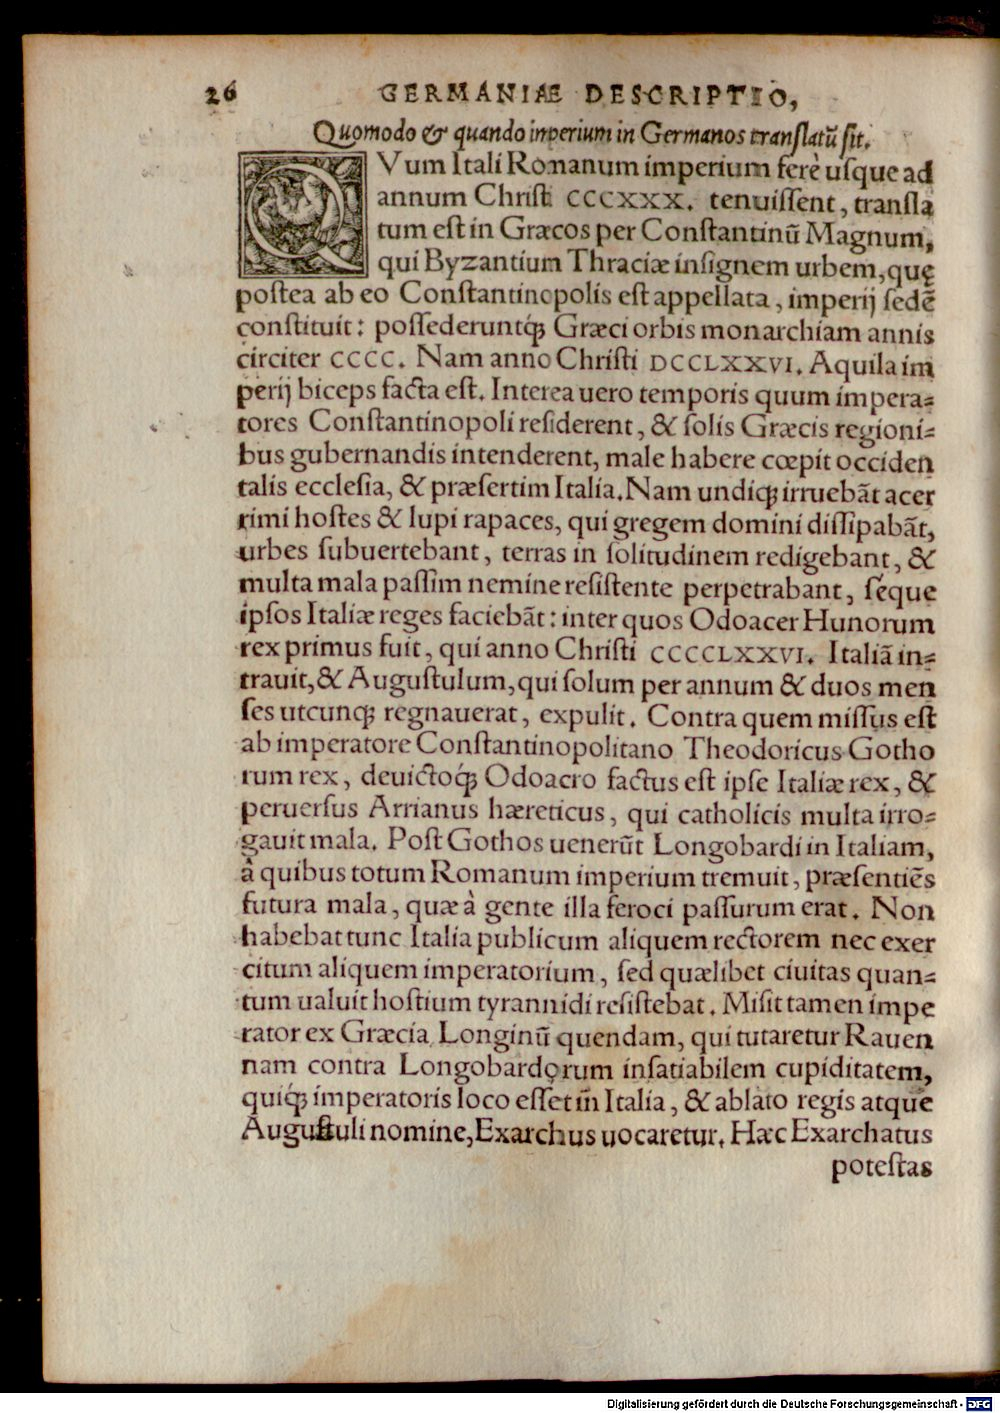 26 GERMANIAE DESCRIPTIO,
Quomodo & quando imperium in Germanos translatũ sit.
QVum Itali Romanum imperium ferè uſque ad
annum Chriſti CCCXXX. tenuiſſent, transla
tum eſt in Græcos per Conſtantinũ Magnum,
qui Byzantium Thraciæ inſignem urbem, quę
poſtea ab eo Conſtantinopolis eſt appellata, imperij ſedẽ
conſtituit: poſſederuntq́; Græci orbis monarchiam annis
circiter CCCC. Nam anno Chriſti DCCLXXVI. Aquila im
perij biceps facta eſt. Interea uero temporis quum impera-
tores Conſtantinopoli reſiderent, & ſolis Græcis regioni-
bus gubernandis intenderent, male habere cœpit occiden
talis eccleſia, & præſertim Italia. Nam undiq; irruebãt acer
rimi hoſtes & lupi rapaces, qui gregem domini diſſipabãt,
urbes ſubuertebant, terras in ſolitudinem redigebant, &
multa mala paſſim nemine reſiſtente perpetrabant, ſéque
ipſos Italiæ reges faciebãt: inter quos Odoacer Hunorum
rex primus fuit, qui anno Chriſti CCCCLXXVI. Italiã in-
trauit, & Auguſtulum, qui ſolum per annum & duos men
ſes utcunq; regnauerat, expulit. Contra quem miſſus eſt
ab imperatore Conſtantinopolitano Theodoricus Gotho
rum rex, deuictoq́; Odoacro factus eſt ipſe Italiæ rex, &
peruerſus Arrianus hæreticus, qui catholicis multa irro-
gauit mala. Poſt Gothos uenerũt Longobardi in Italiam,
â quibus totum Romanum imperium tremuit, præſentiẽs
futura mala, quæ à gente illa feroci paſſurum erat. Non
habebat tunc Italia publicum aliquem rectorem nec exer
citum aliquem imperatorium, ſed quælibet ciuitas quan-
tum ualuit hoſtium tyrannidi reſiſtebat. Miſit tamen impe
rator ex Græcia Longinũ quendam, qui tutaretur Rauen
nam contra Longobardorum inſatiabilem cupiditatem,
quiq́; imperatoris loco eſſet in Italia, & ablato regis atque
Auguſtuli nomine, Exarchus uocaretur. Hæc Exarchatus
poteſtas
Digitalisierung gefördert durch die Deutsche Forschungsgemeinschaft - DFG